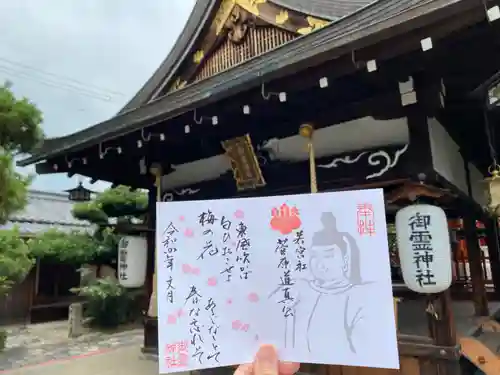 奉拝
若宮社
菅原道真公
東風吹かば
にほひおこせよ
梅の花
あるじなしとて
春なわすれそ
文月
御霊神社
御霊神社